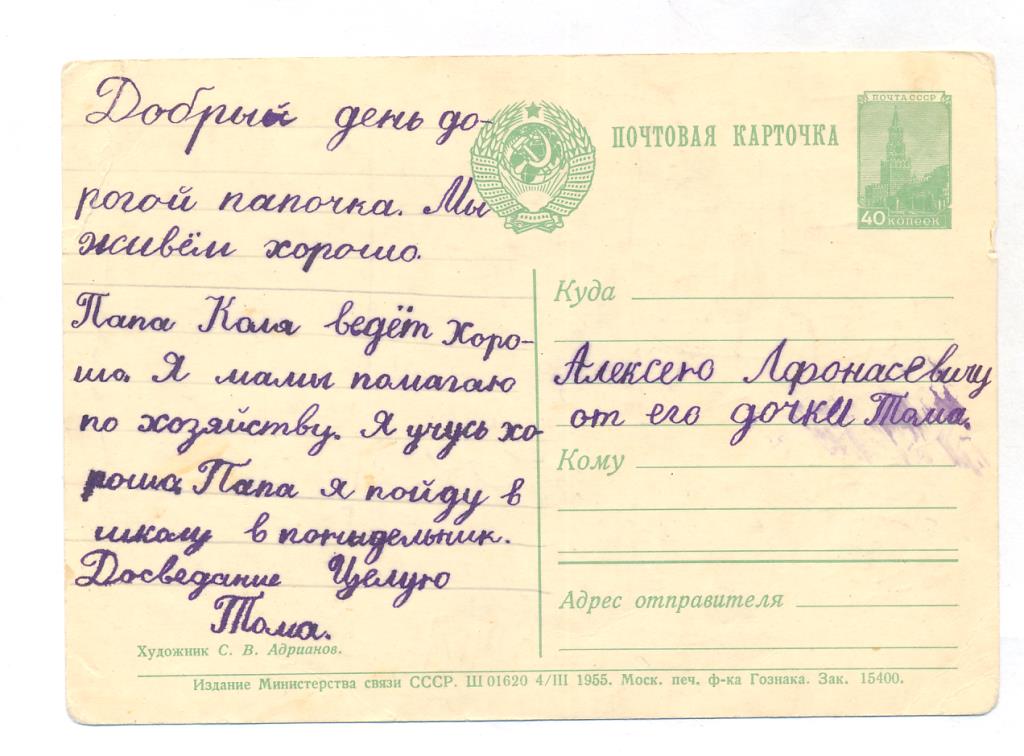 Добрый день до-
рогой папочка. Мы
живём хорошо.
Папа Коля ведёт хоро-
шо. Я мамы помагаю
по хозяйству. Я учусь хо-
роша. Папа я пойду в
школу в понидельник.
Досведание Целую
Тома.
Художник С. В. Адрианов.
ПОЧТОВАЯ КАРТОЧКА
ПОЧТА СССР
40 КОПЕЕК
Куда
Алексею Афонасевичу
от его дочки Тома.
Кому
Адрес отправителя
Издание Министерства связи СССР. Ш 01620 4/III 1955. Моск. печ. ф-ка Гознака. Зак. 15400.